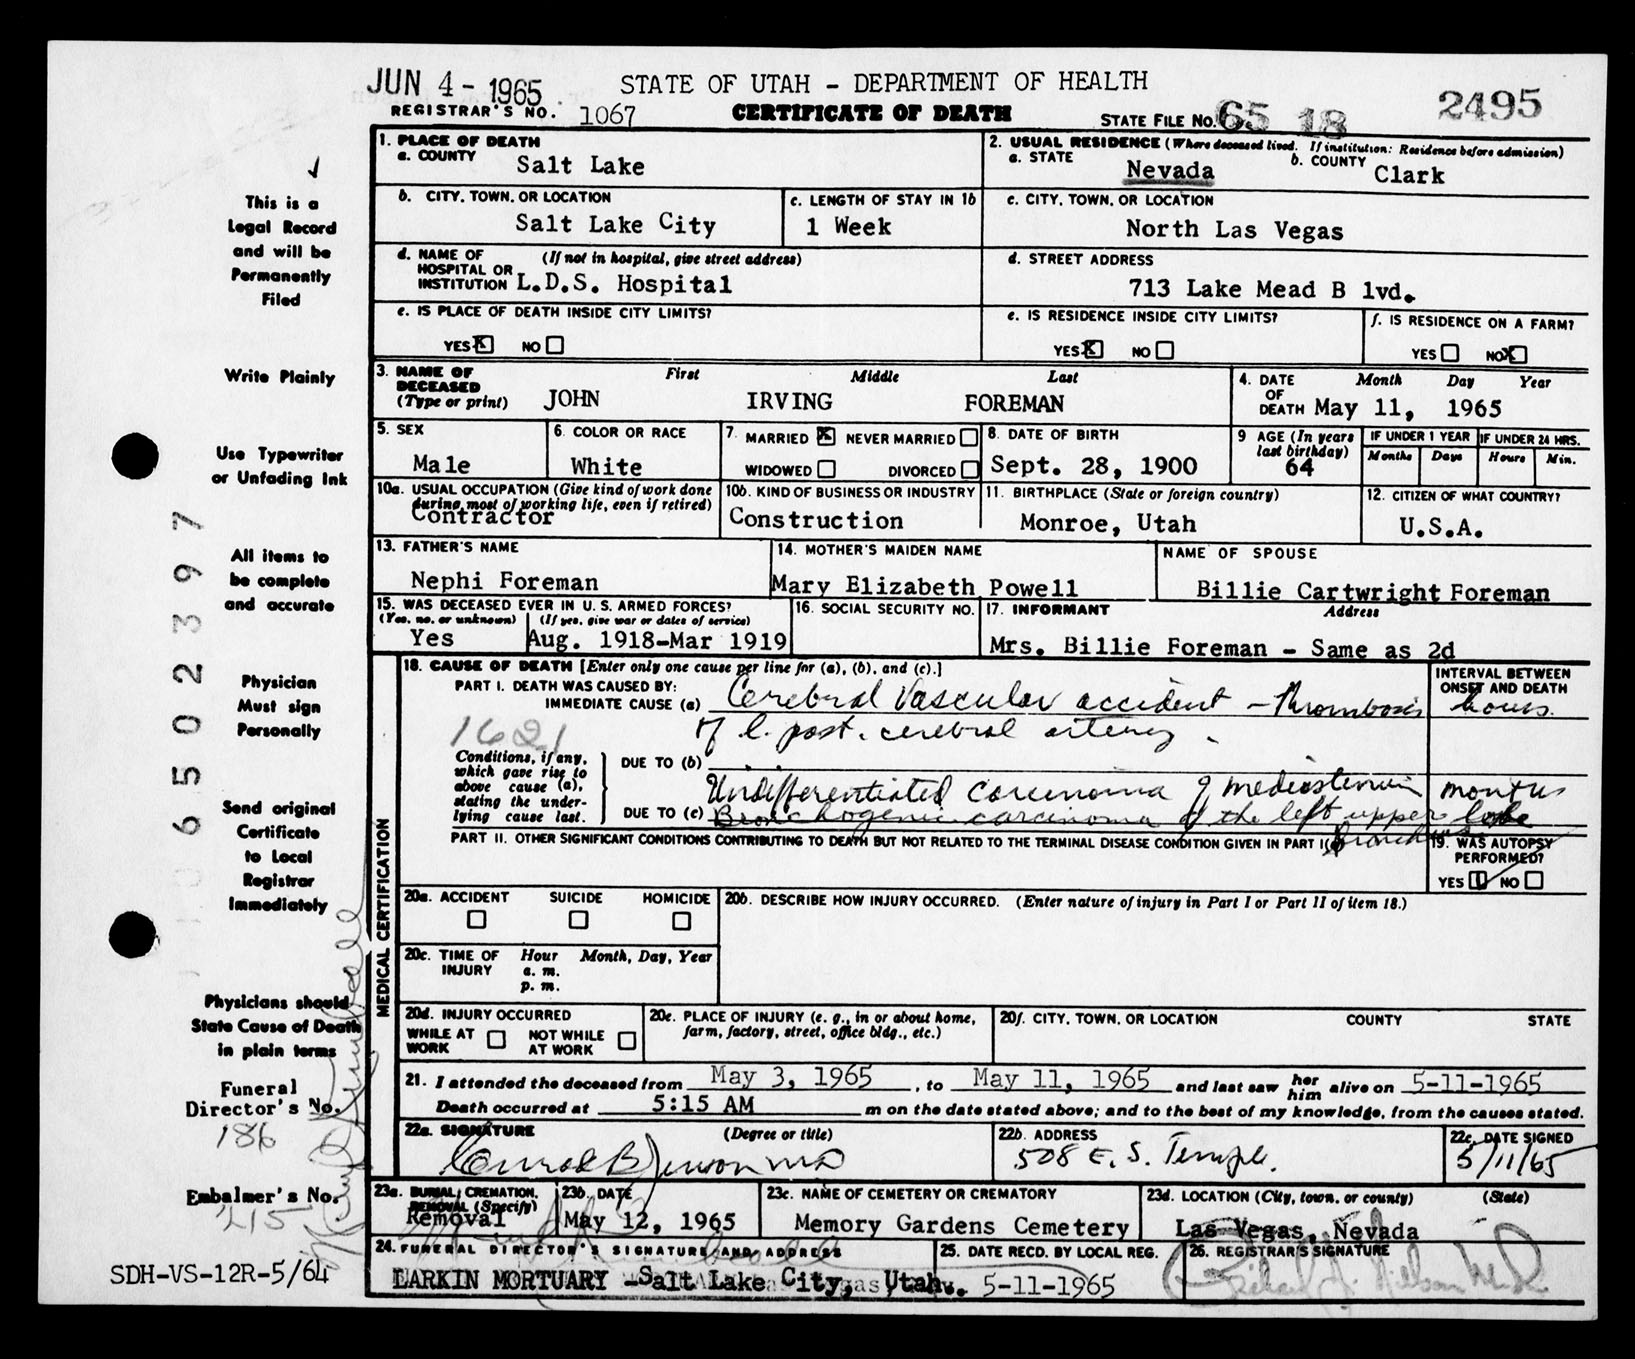 JUN 4 - 1965
STATE OF UTAH - DEPARTMENT OF HEALTH
REGISTRAR'S NO. 1067
CERTIFICATE OF DEATH
STATE FILE NO. 65 18 2495
This is a
Legal Record
and will be
Permanently
Filed
Write Plainly
Use Typewriter
or Unfading Ink
All items to
be complete
and accurate
Physician
Must sign
Personally
Send original
Certificate
to Local
Registrar
Immediately
Physicians should
State Cause of Death
in plain terms
Funeral
Director's No.
186
Embalmer's No.
215
SDH-VS-12R-5/64
6502397
1. PLACE OF DEATH
a. COUNTY Salt Lake
2. USUAL RESIDENCE (Where deceased lived. If institution: Residence before admission)
a. STATE Nevada b. COUNTY Clark
b. CITY, TOWN, OR LOCATION Salt Lake City
c. LENGTH OF STAY IN 1b 1 Week
c. CITY, TOWN, OR LOCATION North Las Vegas
d. NAME OF (If not in hospital, give street address)
HOSPITAL OR
INSTITUTION L.D.S. Hospital
d. STREET ADDRESS
713 Lake Mead B lvd.
e. IS PLACE OF DEATH INSIDE CITY LIMITS?
YES X NO
e. IS RESIDENCE INSIDE CITY LIMITS?
YES X NO
f. IS RESIDENCE ON A FARM?
YES NO X
3. NAME OF DECEASED (Type or print) First Middle Last
JOHN IRVING FOREMAN
4. DATE OF DEATH Month Day Year
May 11, 1965
5. SEX Male
6. COLOR OR RACE White
7. MARRIED X NEVER MARRIED
WIDOWED DIVORCED
8. DATE OF BIRTH Sept. 28, 1900
9 AGE (In years last birthday) 64
IF UNDER 1 YEAR Months Days
IF UNDER 24 HRS. Hours Min.
10a. USUAL OCCUPATION (Give kind of work done during most of working life, even if retired)
Contractor
10b. KIND OF BUSINESS OR INDUSTRY
Construction
11. BIRTHPLACE (State or foreign country)
Monroe, Utah
12. CITIZEN OF WHAT COUNTRY?
U.S.A.
13. FATHER'S NAME
Nephi Foreman
14. MOTHER'S MAIDEN NAME
Mary Elizabeth Powell
NAME OF SPOUSE
Billie Cartwright Foreman
15. WAS DECEASED EVER IN U.S. ARMED FORCES?
(Yes, no, or unknown) (If yes, give war or dates of service)
Yes Aug. 1918-Mar 1919
16. SOCIAL SECURITY NO.
17. INFORMANT Address
Mrs. Billie Foreman - Same as 2d
MEDICAL CERTIFICATION
18. CAUSE OF DEATH [Enter only one cause per line for (a), (b), and (c).]
INTERVAL BETWEEN ONSET AND DEATH
PART I. DEATH WAS CAUSED BY:
IMMEDIATE CAUSE (a) Cerebral Vascular accident - thrombosis hours.
of l. post. cerebral artery.
1621
Conditions, if any, which gave rise to above cause (a), stating the underlying cause last.
DUE TO (b)
Undifferentiated carcinoma of mediastinum months
DUE TO (c) Bronchogenic carcinoma of the left upper lobe
bronchus
PART II. OTHER SIGNIFICANT CONDITIONS CONTRIBUTING TO DEATH BUT NOT RELATED TO THE TERMINAL DISEASE CONDITION GIVEN IN PART I(a)
19. WAS AUTOPSY PERFORMED?
YES NO
20a. ACCIDENT SUICIDE HOMICIDE
20b. DESCRIBE HOW INJURY OCCURRED. (Enter nature of injury in Part I or Part II of item 18.)
20c. TIME OF INJURY Hour Month, Day, Year
a. m.
p. m.
20d. INJURY OCCURRED
WHILE AT WORK NOT WHILE AT WORK
20e. PLACE OF INJURY (e. g., in or about home, farm, factory, street, office bldg., etc.)
20f. CITY, TOWN, OR LOCATION COUNTY STATE
21. I attended the deceased from May 3, 1965, to May 11, 1965 and last saw her him alive on 5-11-1965
Death occurred at 5:15 AM m on the date stated above; and to the best of my knowledge, from the causes stated.
22a. SIGNATURE (Degree or title)
Conrad B Jenson MD
22b. ADDRESS
508 E. S. Temple.
22c. DATE SIGNED
5/11/65
23a. BURIAL, CREMATION, REMOVAL (Specify)
Removal
23b. DATE
May 12, 1965
23c. NAME OF CEMETERY OR CREMATORY
Memory Gardens Cemetery
23d. LOCATION (City, town, or county) (State)
Las Vegas, Nevada
24. FUNERAL DIRECTOR'S SIGNATURE AND ADDRESS
LARKIN MORTUARY - Salt Lake City, Utah.
25. DATE RECD. BY LOCAL REG.
5-11-1965
26. REGISTRAR'S SIGNATURE